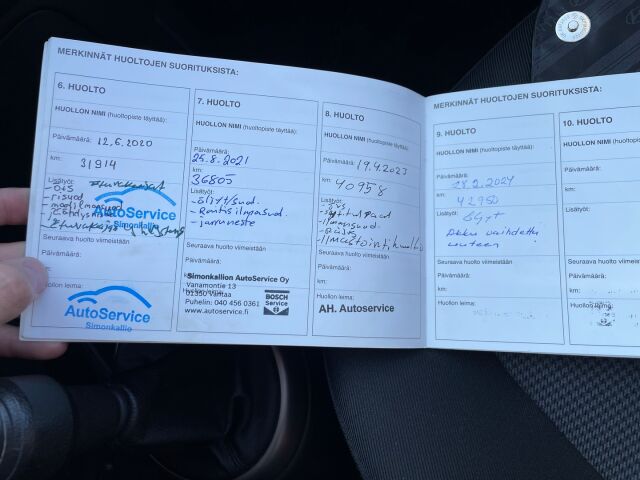 MERKINNÄT HUOLTOJEN SUORITUKSISTA:
6. HUOLTO
HUOLLON NIMI (huoltopiste täyttää):
Päivämäärä: 12.6.2020
km:
31914
Lisätyöt:
AutoService
Simonkallio
Seuraava huolto viimeistään
Päivämäärä:
km:
Huollon leima:
AutoService
Simonkallio
7. HUOLTO
HUOLLON NIMI (huoltopiste täyttää):
Päivämäärä:
25.8.2021
km:
36805
Lisätyöt:
- öljyt/sud.
- Raitisilmasuod.
- jarruneste
Seuraava huolto viimeistään
Päivämäärä:
Simonkallion AutoService Oy
Vanamontie 13
01350 Vantaa
Puhelin: 040 456 0361
www.autoservice.fi
BOSCH
Service
8. HUOLTO
HUOLLON NIMI (huoltopiste täyttää):
Päivämäärä: 19.4.2023
km:
40958
Lisätyöt:
Seuraava huolto viimeistään
Päivämäärä:
km:
Huollon leima:
AH. Autoservice
MERKINNÄT HUOLTOJEN SUORITUKSISTA:
9. HUOLTO
HUOLLON NIMI (huoltopiste täyttää):
Päivämäärä:
28.2.2024
km:
42950
Lisätyöt:
Öljyt
Akku vaihdettu
uuteen
Seuraava huolto viimeistään
Päivämäärä:
km:
Huollon leima:
10. HUOLTO
HUOLLON NIMI (huoltopiste täyttää):
Päivämäärä:
km:
Lisätyöt:
Seuraava huolto viimeistään
Päivämäärä:
km:
Huollon leima: